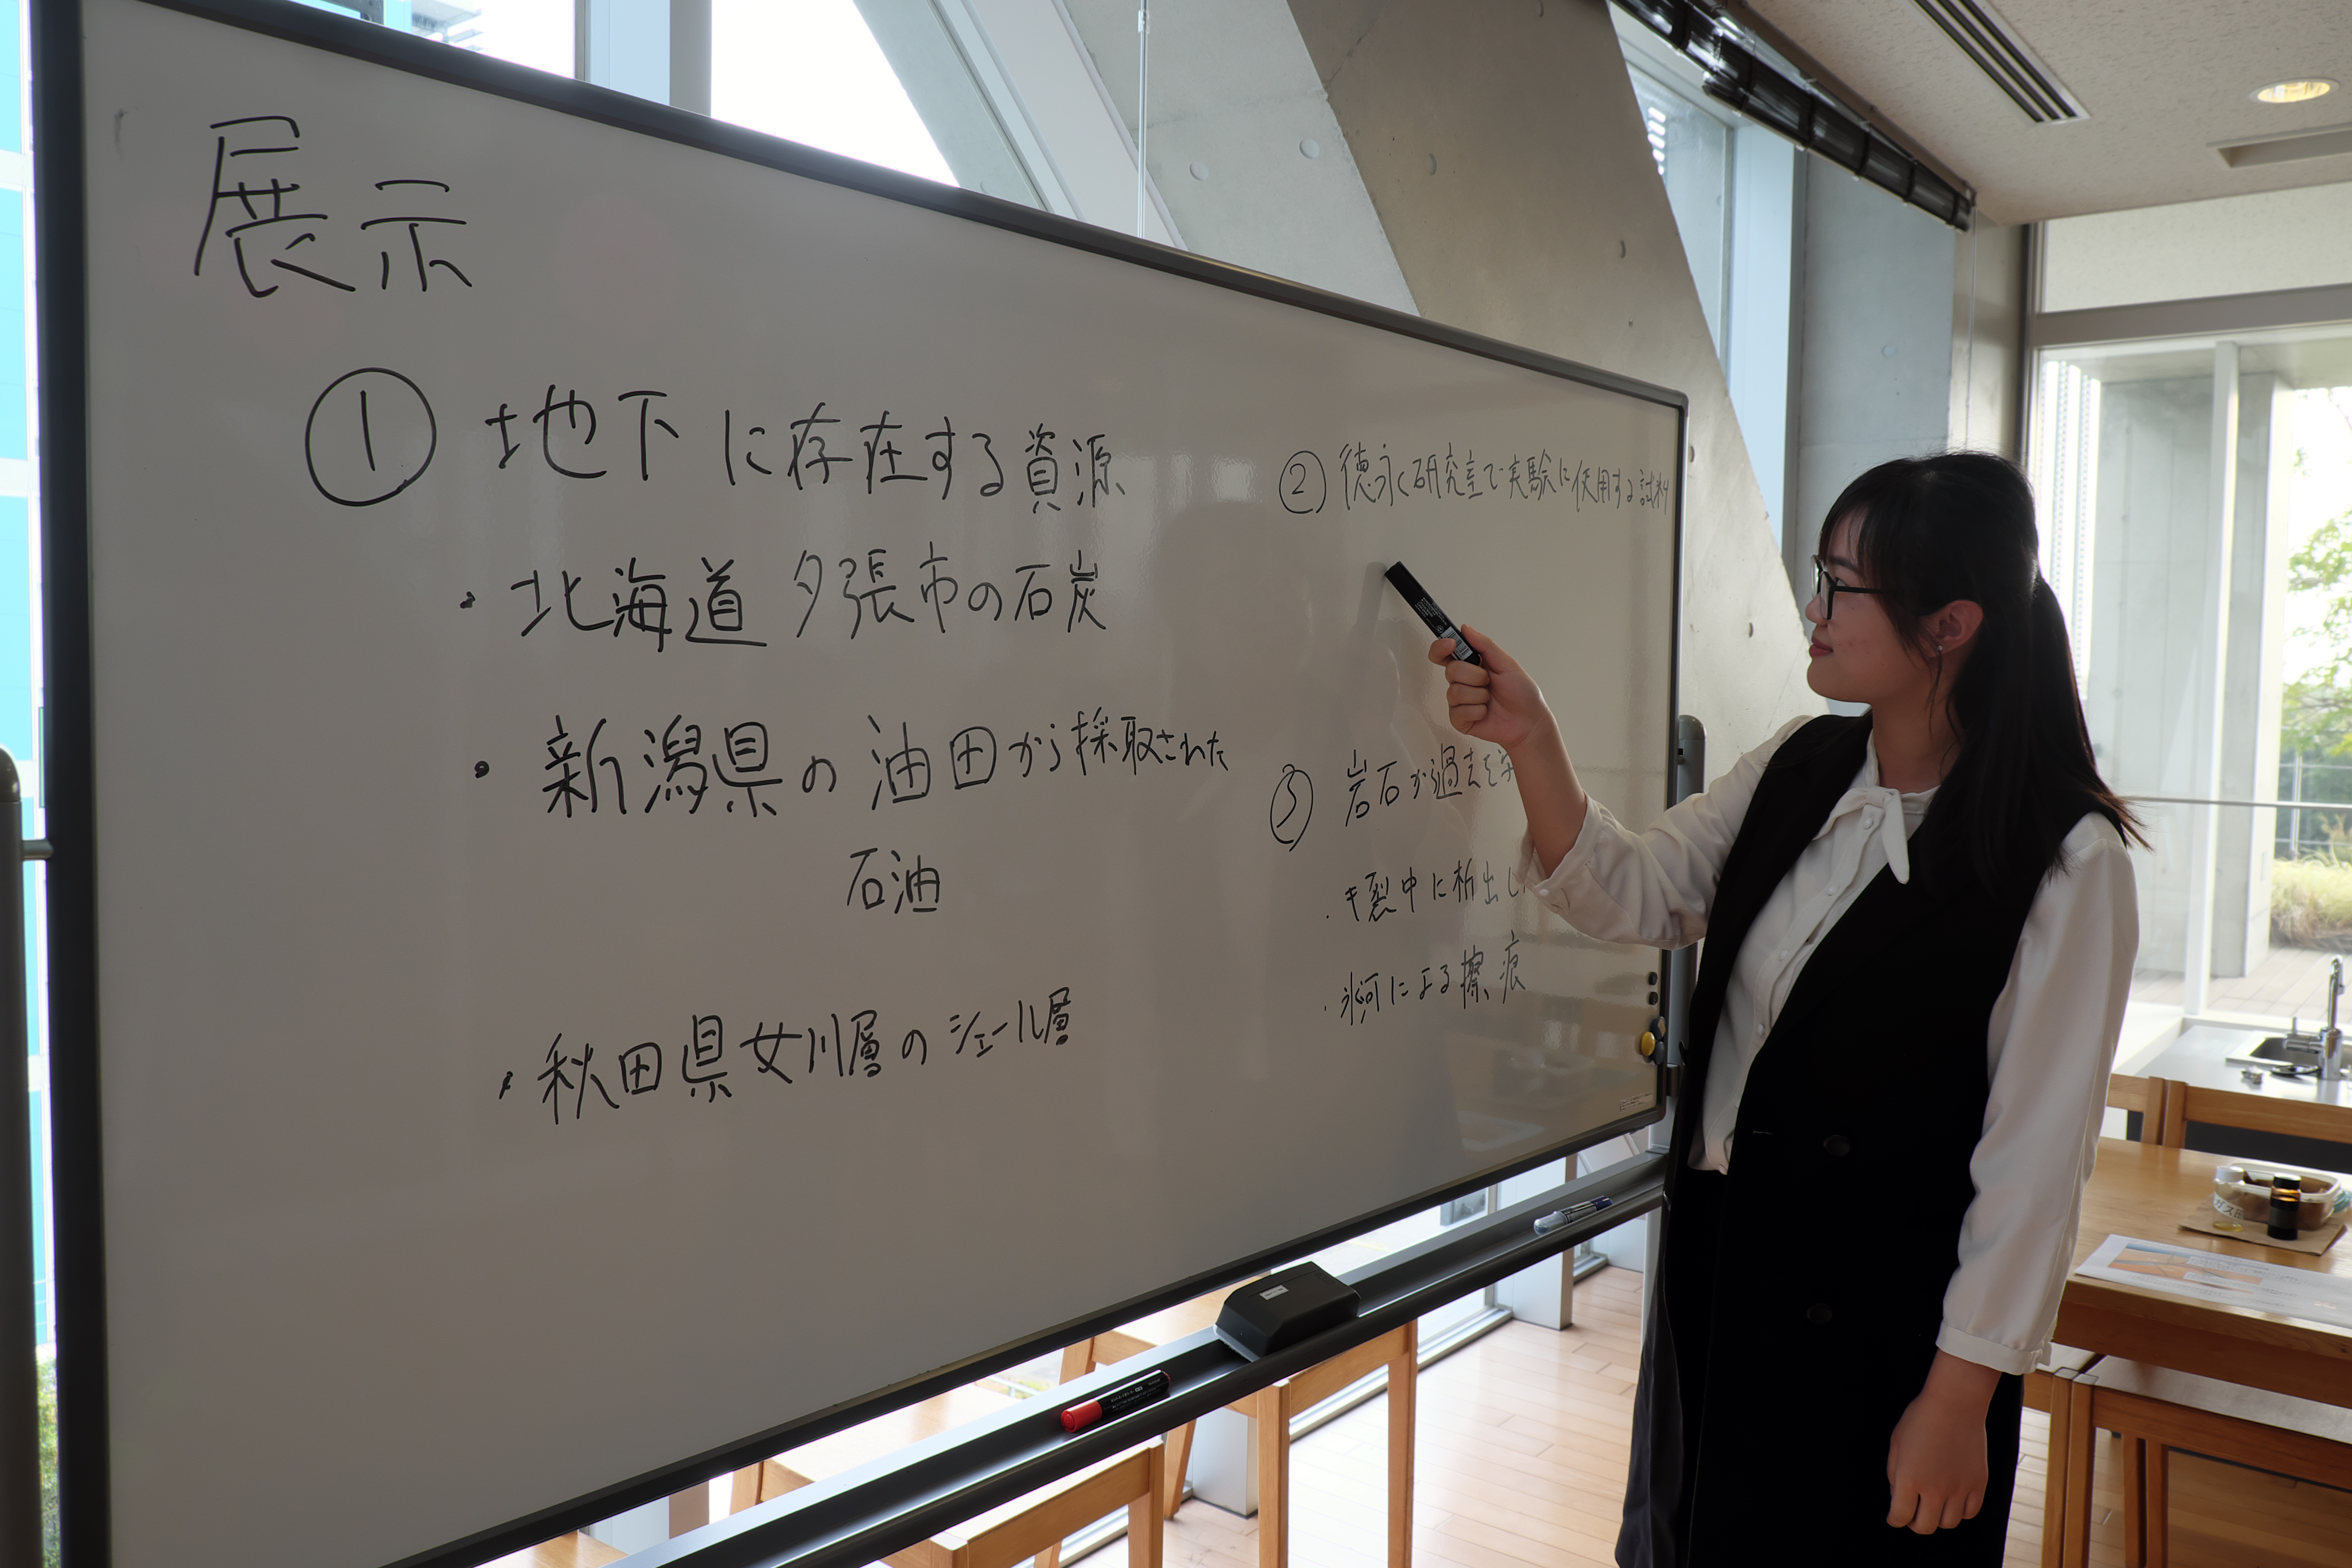 展示
① 地下に存在する資源
・北海道 夕張市の石炭
・新潟県の油田から採取された
石油
・秋田県女川層のシェール層
② 徳永研究室で実験に使用する試料
③ 岩石が過去を
・キ裂中に析出し
・氷河による擦痕